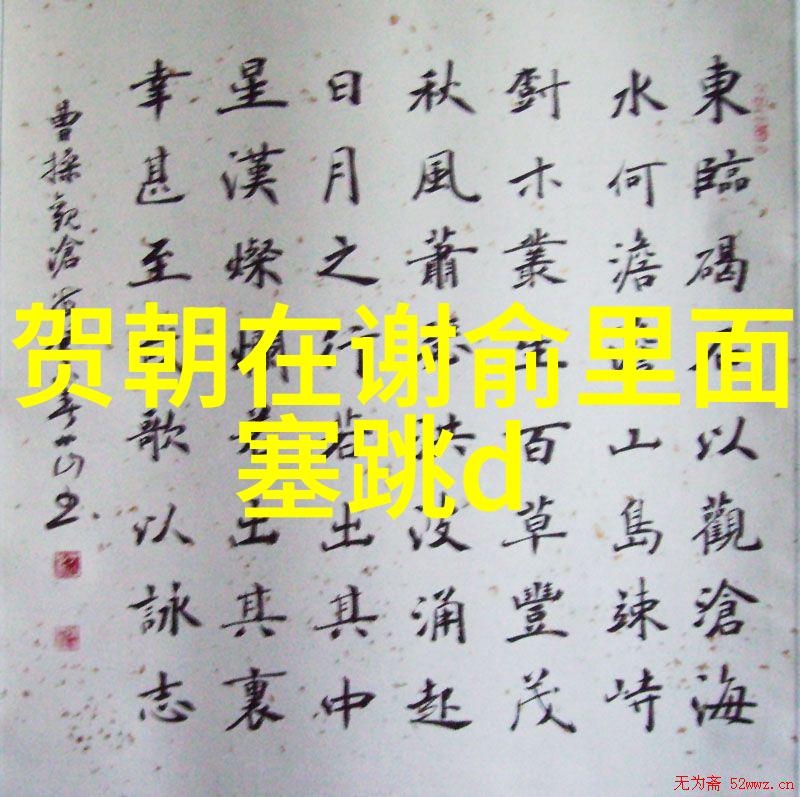 贺朝在谢俞里面
塞跳d
東臨碣石以觀滄海
水何澹澹山島竦峙
尌木叢生百草豐茂
秋風蕭瑟洪波涌起
日月之行若出其中
星漢燦爛若出其裏
幸甚至哉歌以詠志
曹操觀滄
无为斋 52wwz.cn